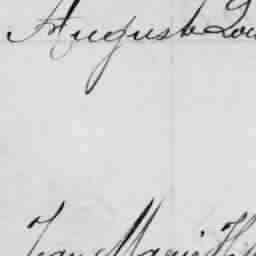 Auguste Lou
Jean Marie Hi